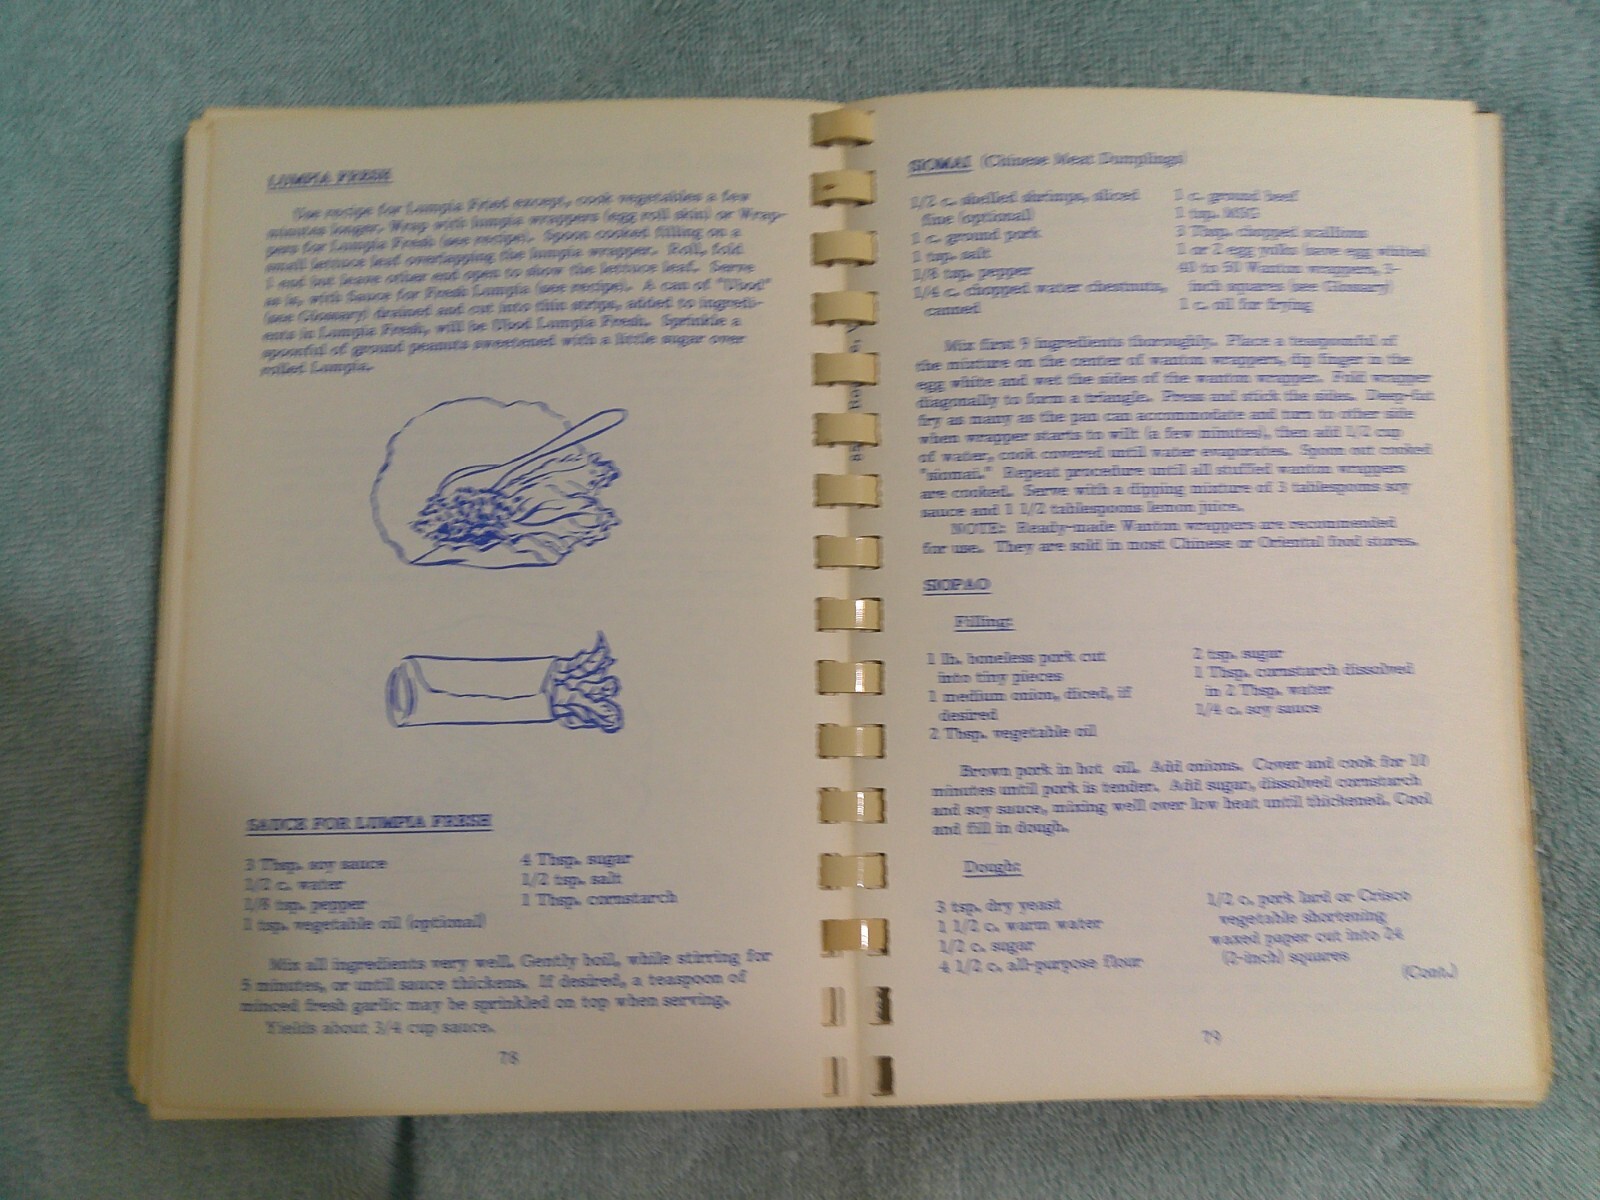 LUMPIA FRESH
Use recipe for Lumpia Fried except, cook vegetables a few
minutes longer. Wrap with lumpia wrappers (egg roll skin) or Wrap-
pers for Lumpia Fresh (see recipe). Spoon cooked filling on a
small lettuce leaf overlapping the lumpia wrapper. Roll, fold
1 end but leave other end open to show the lettuce leaf. Serve
as is, with Sauce for Fresh Lumpia (see recipe). A can of "Ubod"
(see Glossary) drained and cut into thin strips, added to ingredi-
ents in Lumpia Fresh, will be Ubod Lumpia Fresh. Sprinkle a
spoonful of ground peanuts sweetened with a little sugar over
rolled Lumpia.
SAUCE FOR LUMPIA FRESH
3 Tbsp. soy sauce
1/2 c. water
1/8 tsp. pepper
1 tsp. vegetable oil (optional)
4 Tbsp. sugar
1/2 tsp. salt
1 Tbsp. cornstarch
Mix all ingredients very well. Gently boil, while stirring for
5 minutes, or until sauce thickens. If desired, a teaspoon of
minced fresh garlic may be sprinkled on top when serving.
Yields about 3/4 cup sauce.
78
SIOMAI (Chinese Meat Dumplings)
1/2 c. shelled shrimps, sliced
fine (optional)
1 c. ground pork
1 tsp. salt
1/8 tsp. pepper
1/4 c. chopped water chestnuts,
canned
1 c. ground beef
1 tsp. MSG
3 Tbsp. chopped scallions
1 or 2 egg yolks (save egg whites)
40 to 50 Wanton wrappers, 3-
inch squares (see Glossary)
1 c. oil for frying
Mix first 9 ingredients thoroughly. Place a teaspoonful of
the mixture on the center of wanton wrappers, dip finger in the
egg white and wet the sides of the wanton wrapper. Fold wrapper
diagonally to form a triangle. Press and stick the sides. Deep-fat
fry as many as the pan can accommodate and turn to other side
when wrapper starts to wilt (a few minutes), then add 1/2 cup
of water, cook covered until water evaporates. Spoon out cooked
"siomai." Repeat procedure until all stuffed wanton wrappers
are cooked. Serve with a dipping mixture of 3 tablespoons soy
sauce and 1 1/2 tablespoons lemon juice.
NOTE: Ready-made Wanton wrappers are recommended
for use. They are sold in most Chinese or Oriental food stores.
SIOPAO
Filling:
1 lb. boneless pork cut
into tiny pieces
1 medium onion, diced, if
desired
2 Tbsp. vegetable oil
2 tsp. sugar
1 Tbsp. cornstarch dissolved
in 2 Tbsp. water
1/4 c. soy sauce
Brown pork in hot oil. Add onions. Cover and cook for 10
minutes until pork is tender. Add sugar, dissolved cornstarch
and soy sauce, mixing well over low heat until thickened. Cool
and fill in dough.
Dough:
3 tsp. dry yeast
1 1/2 c. warm water
1/2 c. sugar
4 1/2 c. all-purpose flour
1/2 c. pork lard or Crisco
vegetable shortening
waxed paper cut into 24
(2-inch) squares
(Cont.)
79